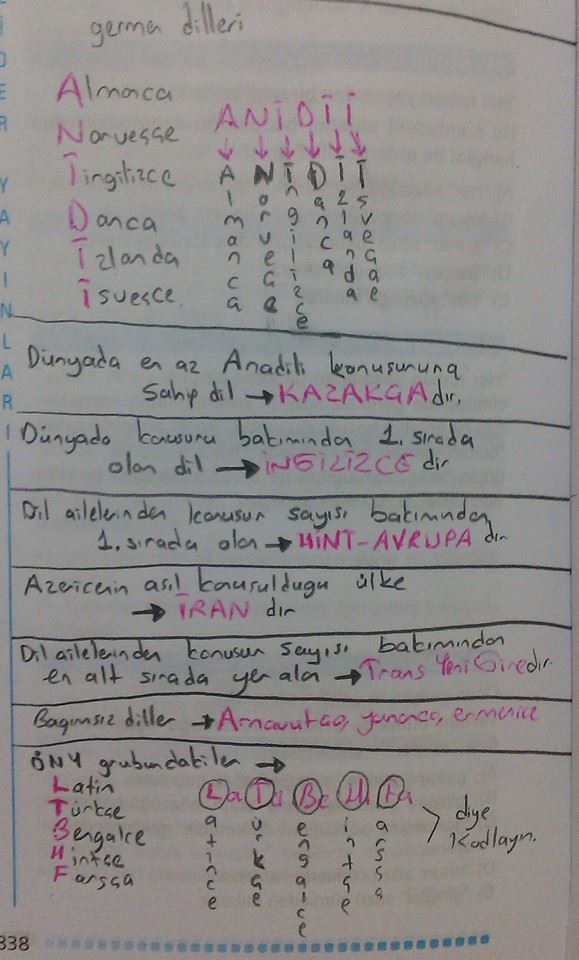 germen dilleri
Almanca
Norveççe
İingilizce
Danca
İzlanda
İsveçce
ANİDİİ
A N İ D İ İ
Almanca
Norveçce
İngilizce
Danca
İzlanda
İsveçae
Dünyada en az Anadili konuşununa
Sahip dil → KAZAKÇA dır.
Dünyada konuşuru bakımından 1. sırada
olan dil → İNGİLİZCE dir
Dil ailelerinden konuşur sayısı bakımından
1. sırada olan → HİNT-AVRUPA dır
Azericenin asıl konuşulduğu ülke
→ İRAN dır
Dil ailelerinden konuşur sayısı bakımından
en alt sırada yer alan → Trans Yeni Gine dir
Bağımsız diller → Arnavutça, yunanca, ermenice
ÖNY grubundakiler →
Latin
Türkçe
Bengalce
Hintçe
Farsça
La Tü Be Hi Fa
Latince
Türkçe
Bengalce
Hintçe
Farsça
diye
Kodlayın.
338
YAYINLARI